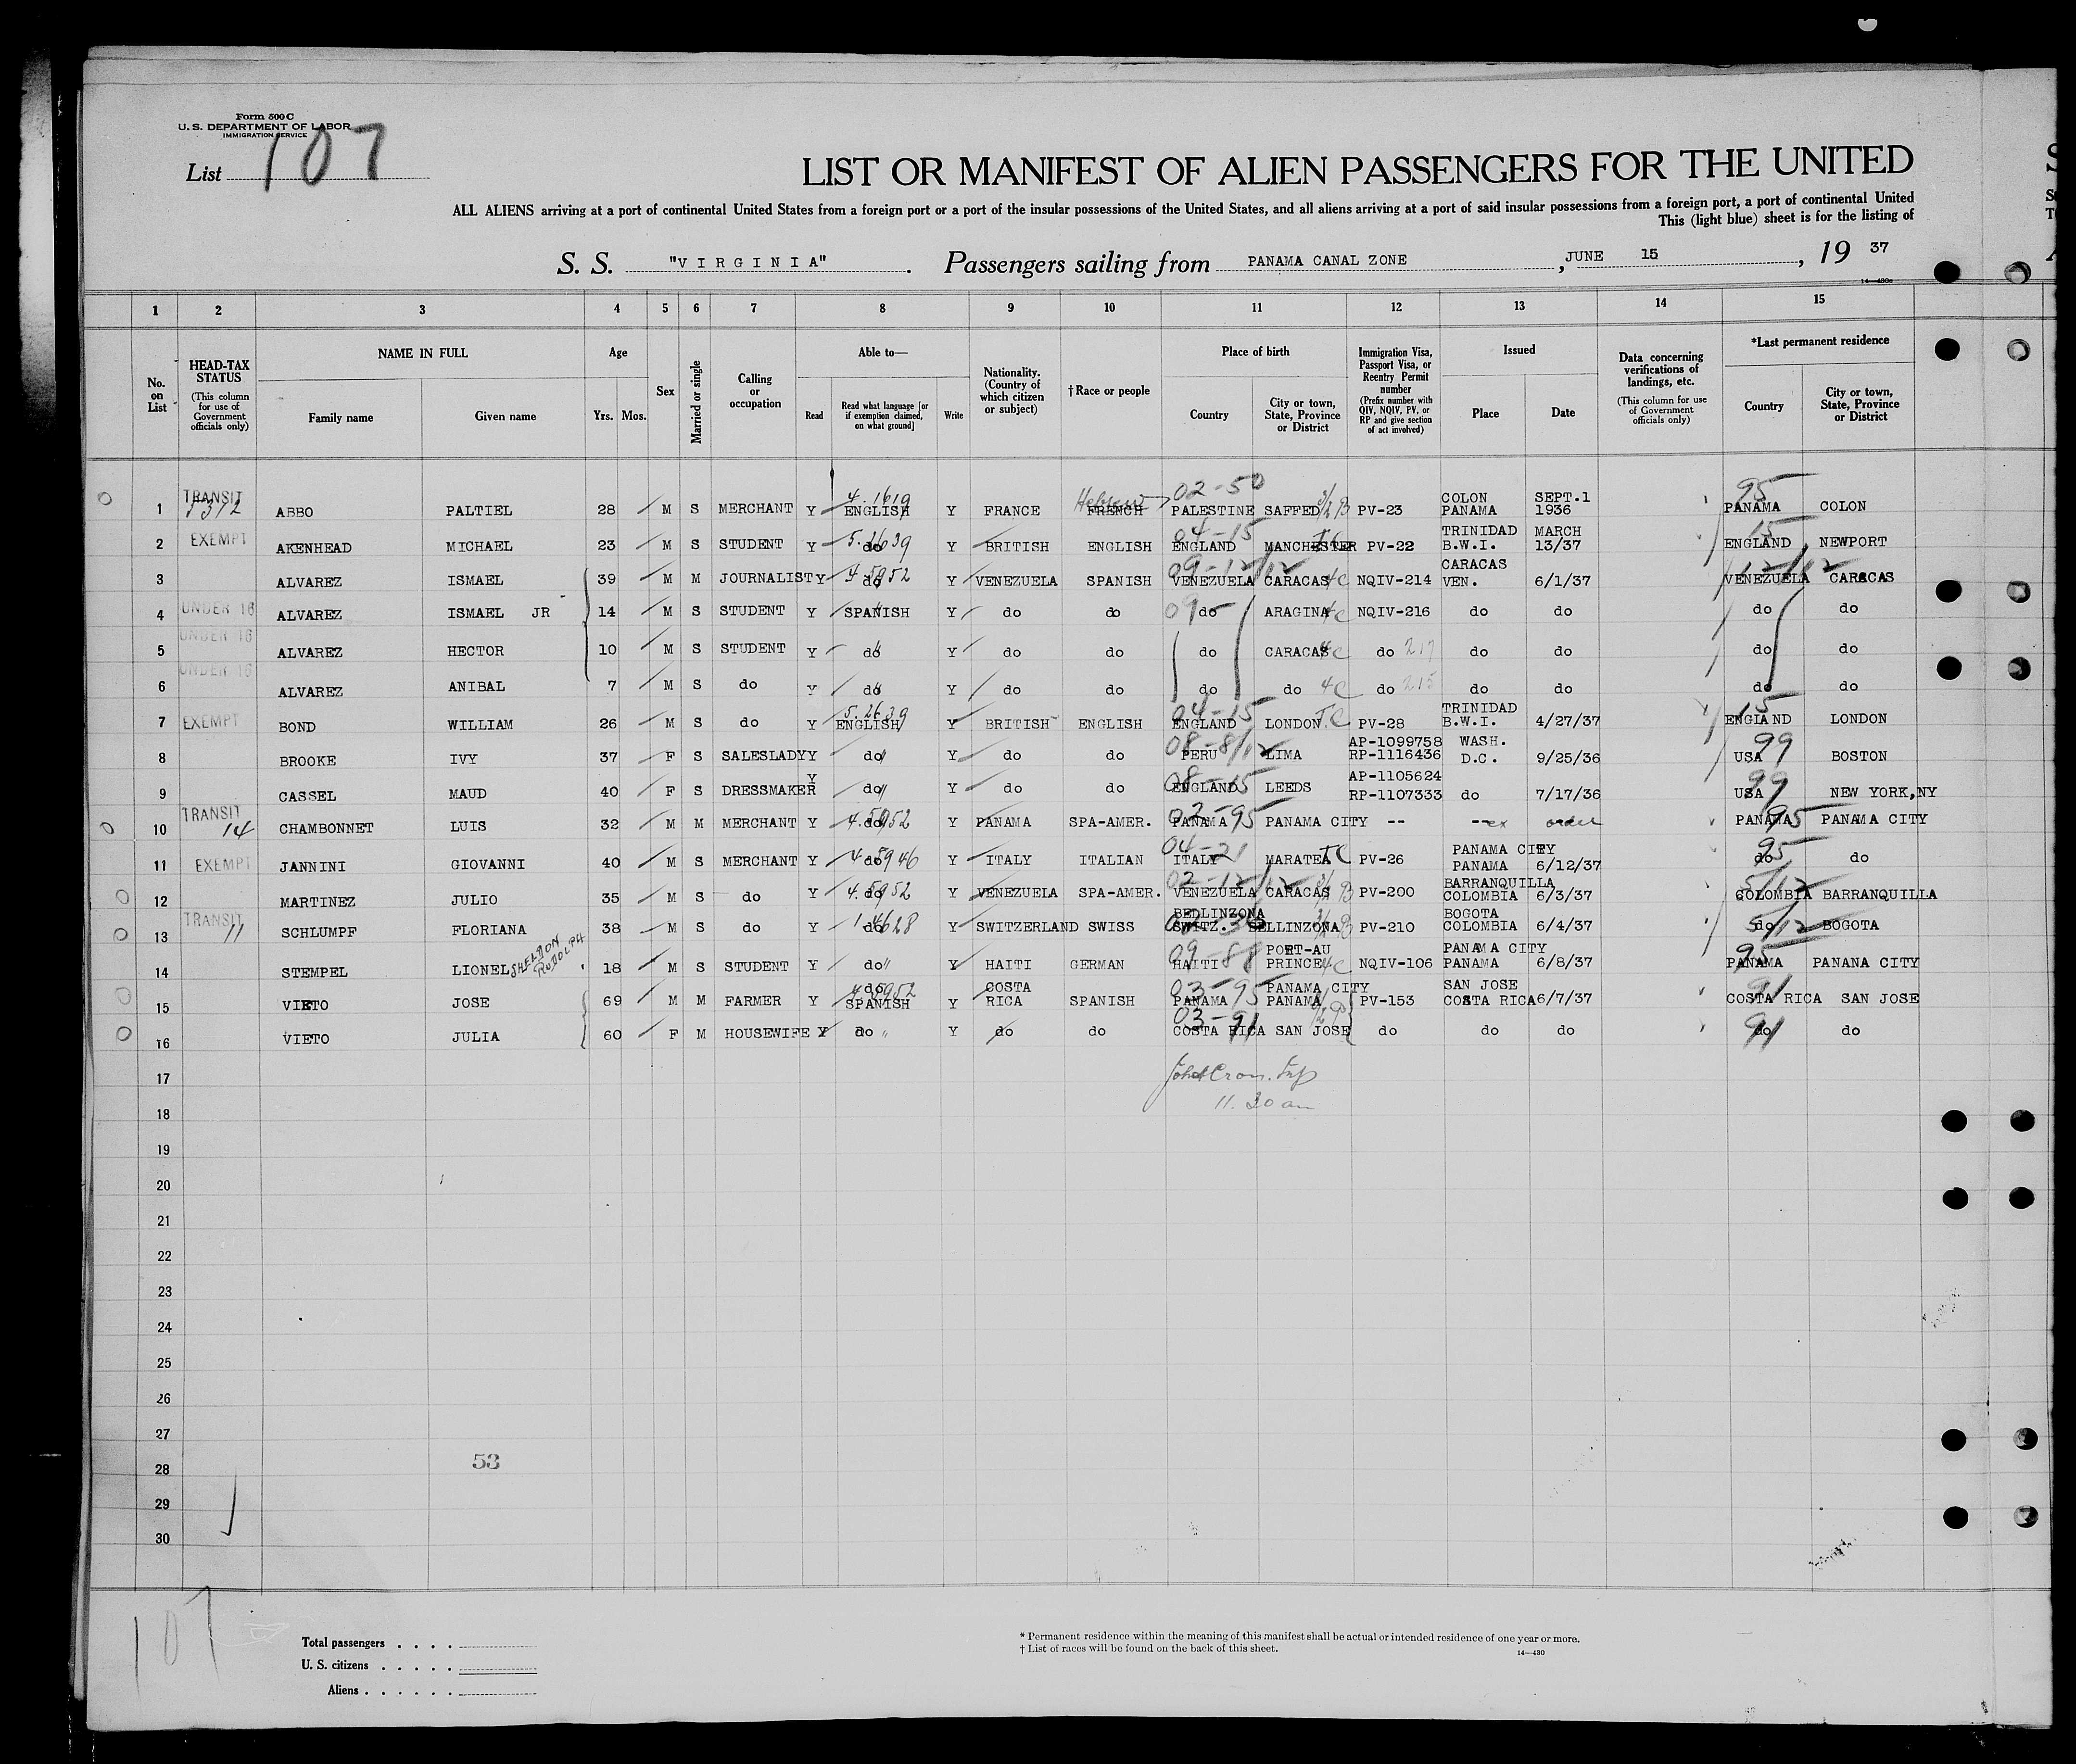 Form 500 C
U. S. DEPARTMENT OF LABOR
IMMIGRATION SERVICE
List 107
LIST OR MANIFEST OF ALIEN PASSENGERS FOR THE UNITED
ALL ALIENS arriving at a port of continental United States from a foreign port or a port of the insular possessions of the United States, and all aliens arriving at a port of said insular possessions from a foreign port, a port of continental United
This (light blue) sheet is for the listing of
S. S. "VIRGINIA". Passengers sailing from PANAMA CANAL ZONE, JUNE 15, 19 37
1 2 3 4 5 6 7 8 9 10 11 12 13 14 15
No. on List
HEAD-TAX STATUS
(This column for use of Government officials only)
NAME IN FULL
Family name Given name
Age
Yrs. Mos.
Sex
Married or single
Calling or occupation
Able to—
Read Read what language [or if exemption claimed, on what ground] Write
Nationality. (Country of which citizen or subject)
†Race or people
Place of birth
Country City or town, State, Province or District
Immigration Visa, Passport Visa, or Reentry Permit number
(Prefix number with QIV, NQIV, PV, or RP and give section of act involved)
Issued
Place Date
Data concerning verifications of landings, etc.
(This column for use of Government officials only)
*Last permanent residence
Country City or town, State, Province or District
1 TRANSIT ABBO PALTIEL 28 M S MERCHANT Y ENGLISH Y FRANCE Hebrew FRENCH 02-50 PALESTINE SAFFED PV-23 COLON PANAMA SEPT.1 1936 95 PANAMA COLON
2 EXEMPT AKENHEAD MICHAEL 23 M S STUDENT Y do Y BRITISH ENGLISH 04-15 ENGLAND MANCHESTER PV-22 TRINIDAD B.W.I. MARCH 13/37 15 ENGLAND NEWPORT
3 ALVAREZ ISMAEL 39 M M JOURNALIST Y do Y VENEZUELA SPANISH 09-12/12 VENEZUELA CARACAS 4C NQIV-214 CARACAS VEN. 6/1/37 12/12 VENEZUELA CARACAS
4 UNDER 16 ALVAREZ ISMAEL JR 14 M S STUDENT Y SPANISH Y do do 09 do ARAGINA 4C NQIV-216 do do do do
5 UNDER 16 ALVAREZ HECTOR 10 M S STUDENT Y do Y do do do CARACAS 4C do 217 do do do do
6 UNDER 16 ALVAREZ ANIBAL 7 M S do Y do Y do do do do 4C do 215 do do do do
7 EXEMPT BOND WILLIAM 26 M S do Y 5.2639 ENGLISH Y BRITISH ENGLISH 04-15 ENGLAND LONDON PV-28 TRINIDAD B.W.I. 4/27/37 15 ENGLAND LONDON
8 BROOKE IVY 37 F S SALESLADY Y do Y do do 08-8/12 PERU LIMA AP-1099758 RP-1116436 WASH. D.C. 9/25/36 99 USA BOSTON
9 CASSEL MAUD 40 F S DRESSMAKER Y do Y do do 08-15 ENGLAND LEEDS AP-1105624 RP-1107333 do 7/17/36 99 USA NEW YORK,NY
10 TRANSIT 14 CHAMBONNET LUIS 32 M M MERCHANT Y do Y PANAMA SPA-AMER. 02-95 PANAMA PANAMA CITY -- -- ex order 95 PANAMA PANAMA CITY
11 EXEMPT JANNINI GIOVANNI 40 M S MERCHANT Y do Y ITALY ITALIAN 04-21 ITALY MARATEA PV-26 PANAMA CITY PANAMA 6/12/37 95 do do
12 MARTINEZ JULIO 35 M S do Y do Y VENEZUELA SPA-AMER. 02-12/12 VENEZUELA CARACAS PV-200 BARRANQUILLA COLOMBIA 6/3/37 5/12 COLOMBIA BARRANQUILLA
13 TRANSIT 11 SCHLUMPF FLORIANA 38 M S do Y do Y SWITZERLAND SWISS BEDLINZONA SWITZ. BELLINZONA PV-210 BOGOTA COLOMBIA 6/4/37 5/12 do BOGOTA
14 STEMPEL LIONEL SHELDON RUDOLPH 18 M S STUDENT Y do Y HAITI GERMAN 09-88 HAITI PORT-AU PRINCE 4C NQIV-106 PANAMA CITY PANAMA 6/8/37 95 PANAMA PANANA CITY
15 VIETO JOSE 69 M M FARMER Y do SPANISH Y COSTA RICA SPANISH 03-95 PANAMA PANAMA CITY PANAMA PV-153 SAN JOSE COSTA RICA 6/7/37 91 COSTA RICA SAN JOSE
16 VIETO JULIA 60 F M HOUSEWIFE Y do Y do do 03-91 COSTA RICA SAN JOSE do do do 91 do do
17
11.20 am
18
19
20
21
22
23
24
25
26
27
28 53
29
30
107
Total passengers . . . .
U. S. citizens . . . . .
Aliens . . . . . .
* Permanent residence within the meaning of this manifest shall be actual or intended residence of one year or more.
† List of races will be found on the back of this sheet.
14—430